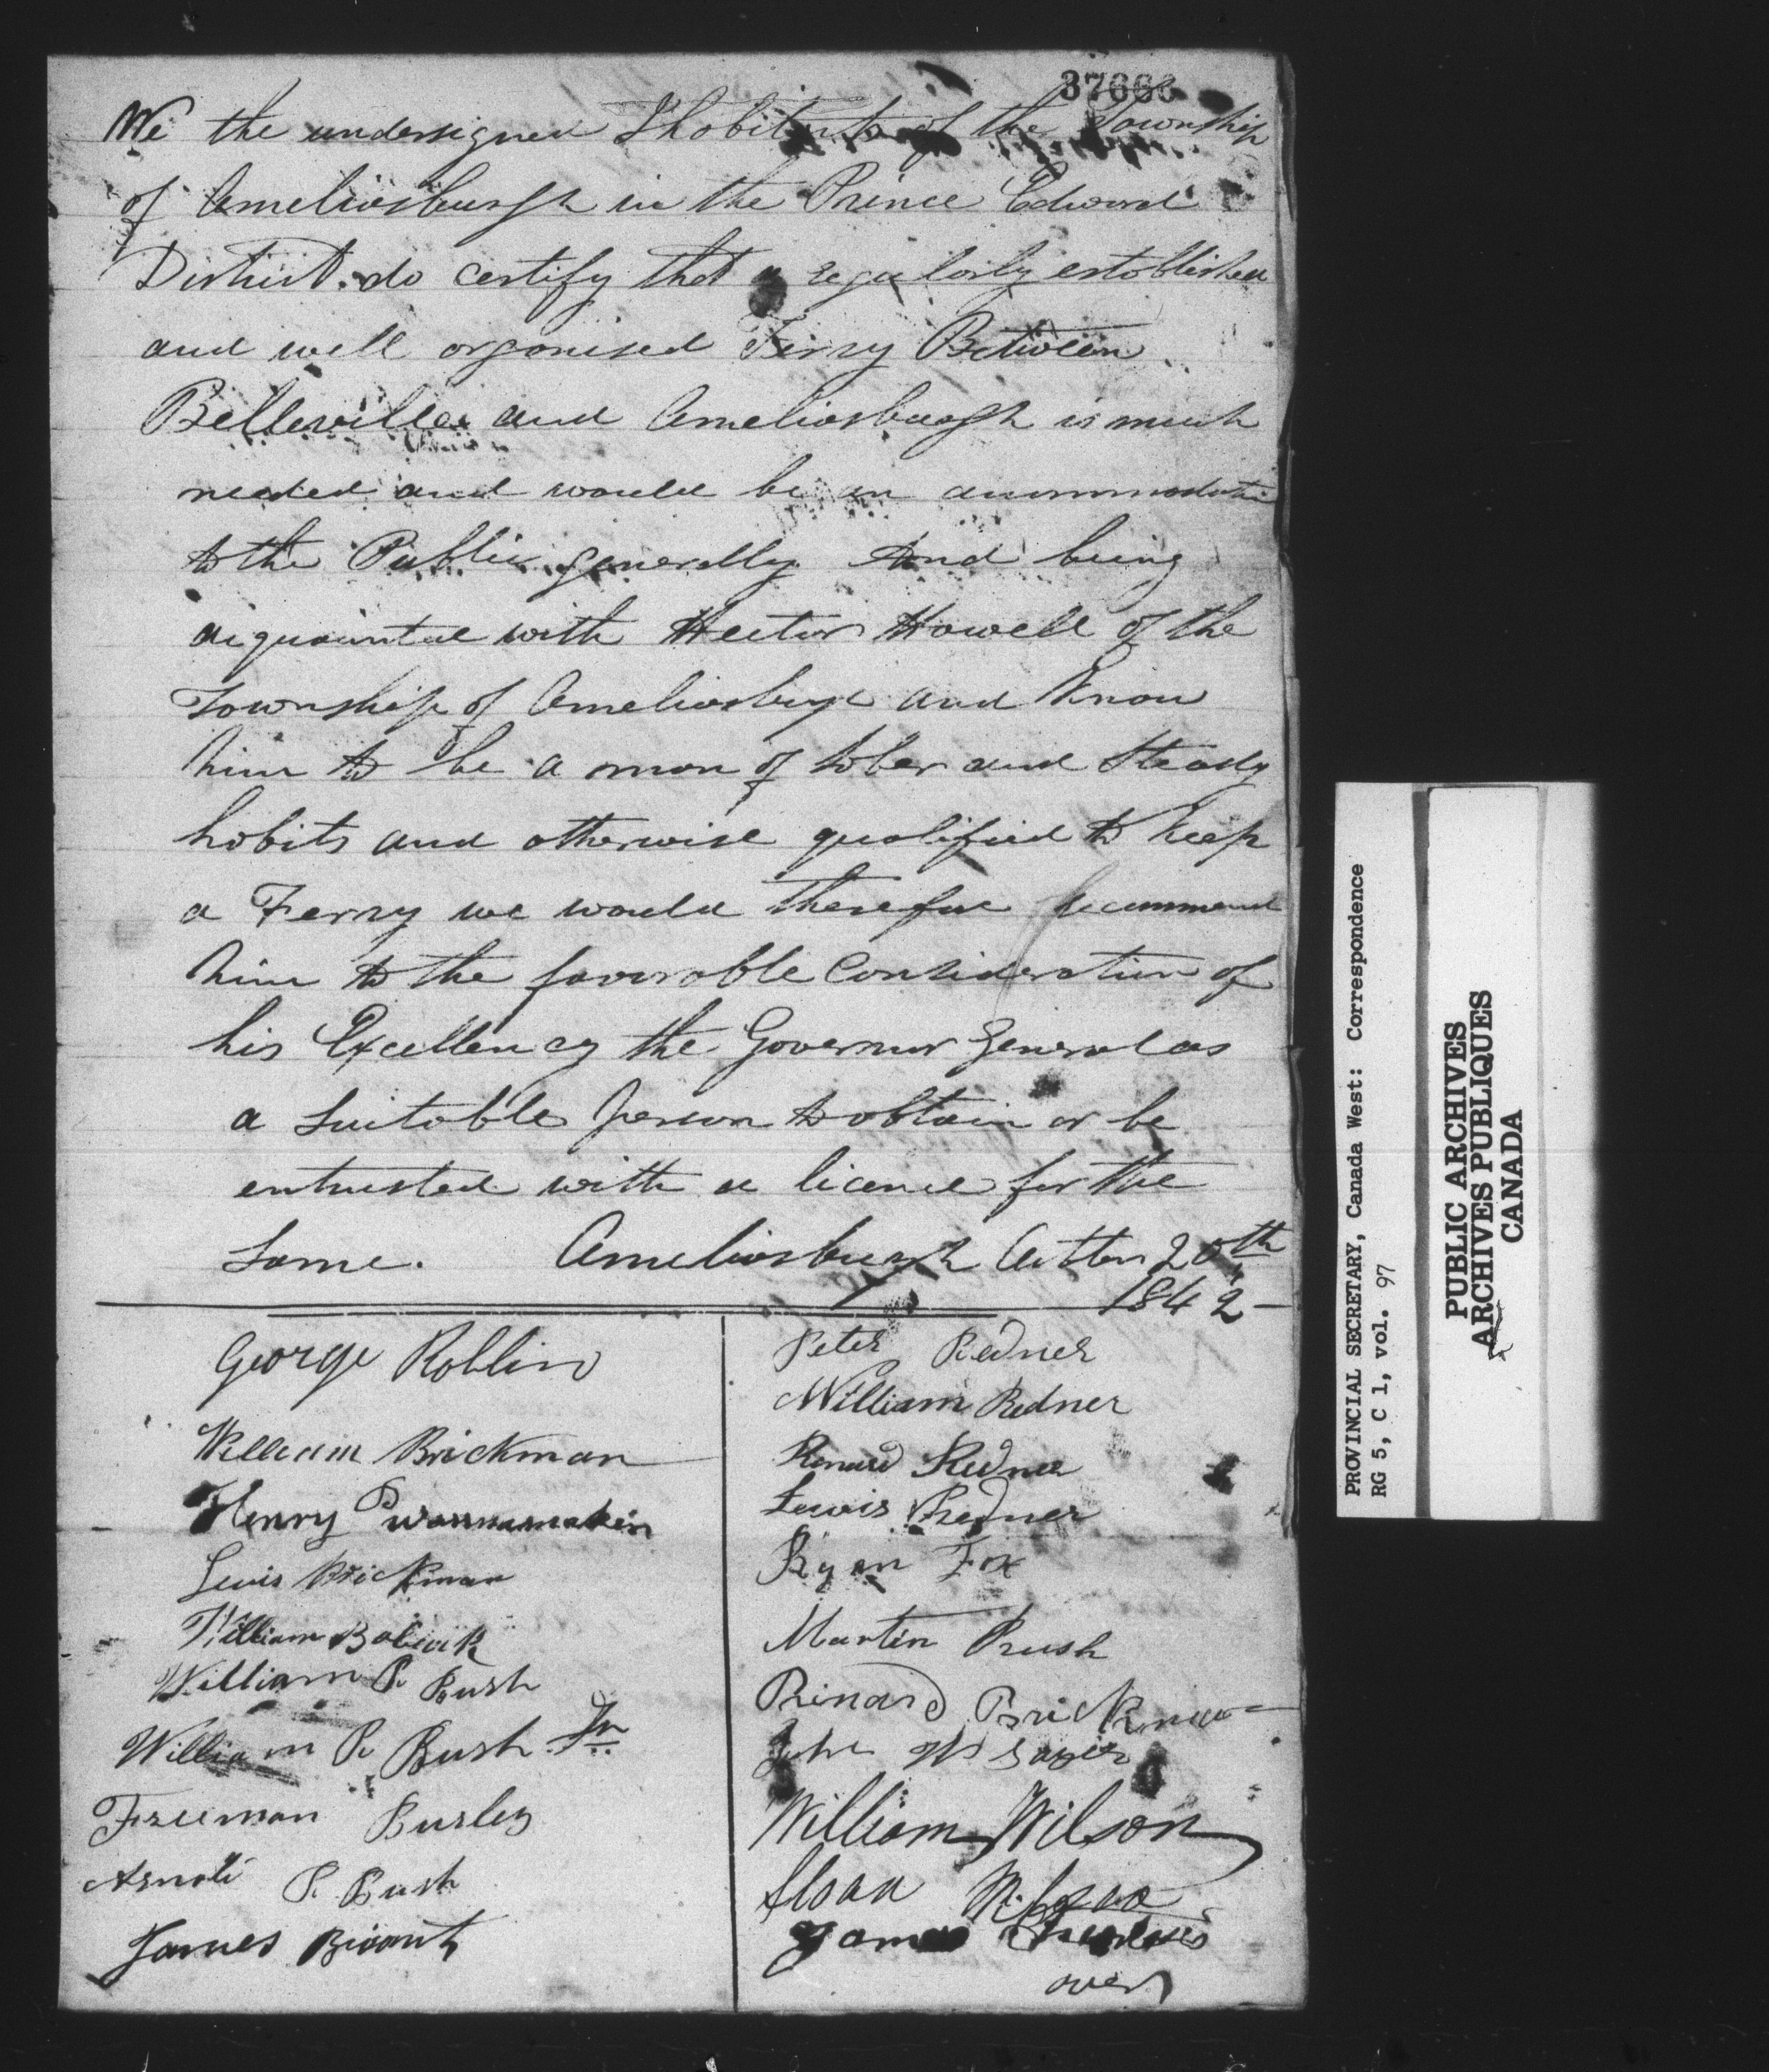 37666
We the undersigned Ihobitants of the Township
of Ameliasburgh in the Prince Edward
District do certify that a regularly established
and well organised Ferry Between
Belleville and Ameliasburgh is much
needed and would be an accommodation
to the Public generally And being
acquainted with Hector Howell of the
Township of Ameliasburgh and know
him to be a man of sober and Steady
habits and otherwise qualified to keep
a Ferry we would therefore recommend
him to the favorable Consideration of
his Excellency the Governor General as
a Suitable person to obtain or be
entrusted with a licence for the
Same. Ameliasburgh 20th
1842
George Roblin
William Brickman
Henry Wannamaker
Lewis Brickman
William Babcock
William P. Bush
William P. Bush Jn
Freeman Burley
P. Bush
James
Peter Redner
William Redner
Redner
Lewis Redner
Ryan Fox
Martin Rush
Rinard Brickman
John W
William Wilson
Sloan
James
over
PROVINCIAL SECRETARY, Canada West: Correspondence
RG 5, C 1, vol. 97
PUBLIC ARCHIVES
ARCHIVES PUBLIQUES
CANADA